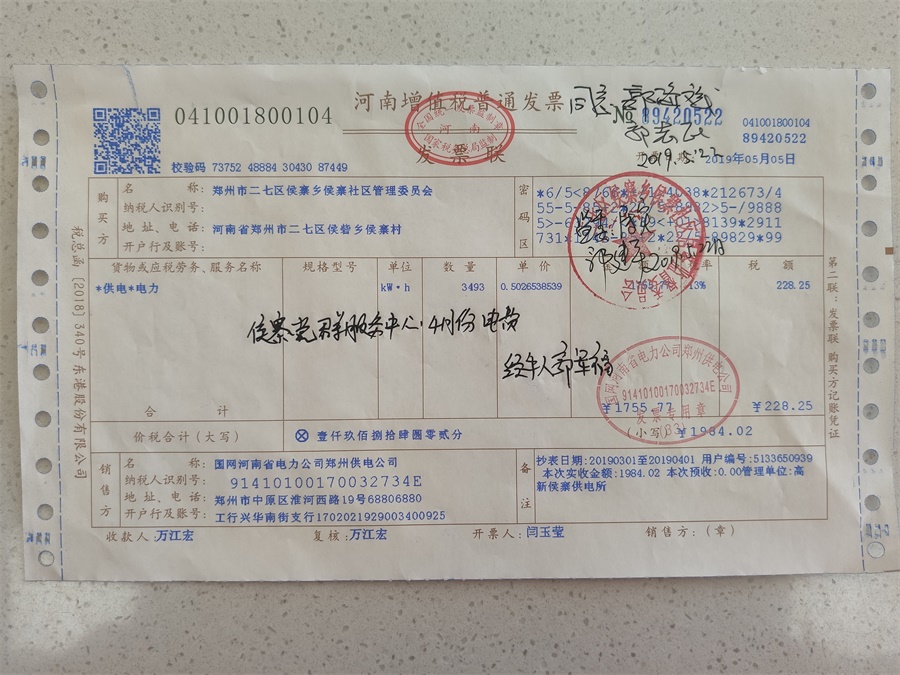 041001800104
河南增值税普通发票
发票联
全国统一发票监制章
河南
国家税务总局监制
№ 89420522
041001800104
89420522
校验码 73752 48884 30430 87449
开票日期: 2019年05月05日
同意
2019.5.22
购买方
名称: 郑州市二七区侯寨乡侯寨社区管理委员会
纳税人识别号:
地址、电话: 河南省郑州市二七区侯砦乡侯寨村
开户行及账号:
密码区
2019.5.22日
货物或应税劳务、服务名称 规格型号 单位 数量 单价 金额 税率 税额
*供电*电力 kW·h 3493 0.5026538539 1755.77 13% 228.25
侯寨党群服务中心.4月份电费
经手人
国网河南省电力公司郑州供电公司
91410100170032734E
发票专用章
(33)
合计 ¥1755.77 ¥228.25
价税合计(大写) ⊗壹仟玖佰捌拾肆圆零贰分 (小写) ¥1984.02
销售方
名称: 国网河南省电力公司郑州供电公司
纳税人识别号: 91410100170032734E
地址、电话: 郑州市中原区淮河西路19号68806880
开户行及账号: 工行兴华南街支行1702021929003400925
备注
抄表日期:20190301至20190401 用户编号:5133650939
本次实收金额:1984.02 本次预收:0.00管理单位:高
新侯寨供电所
收款人:万江宏 复核:万江宏 开票人:闫玉莹 销售方:(章)
税总函[2018]340号东港股份有限公司
第二联:发票联 购买方记账凭证